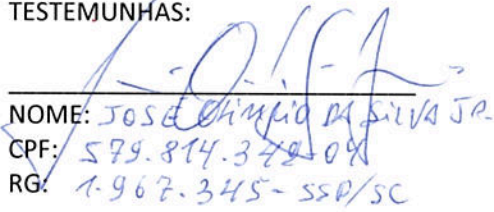 TESTEMUNHAS:
NOME: JOSE Olimpio DA SILVA JR.
CPF: 579.814.349-04
RG: 1.967.345-SSP/SC